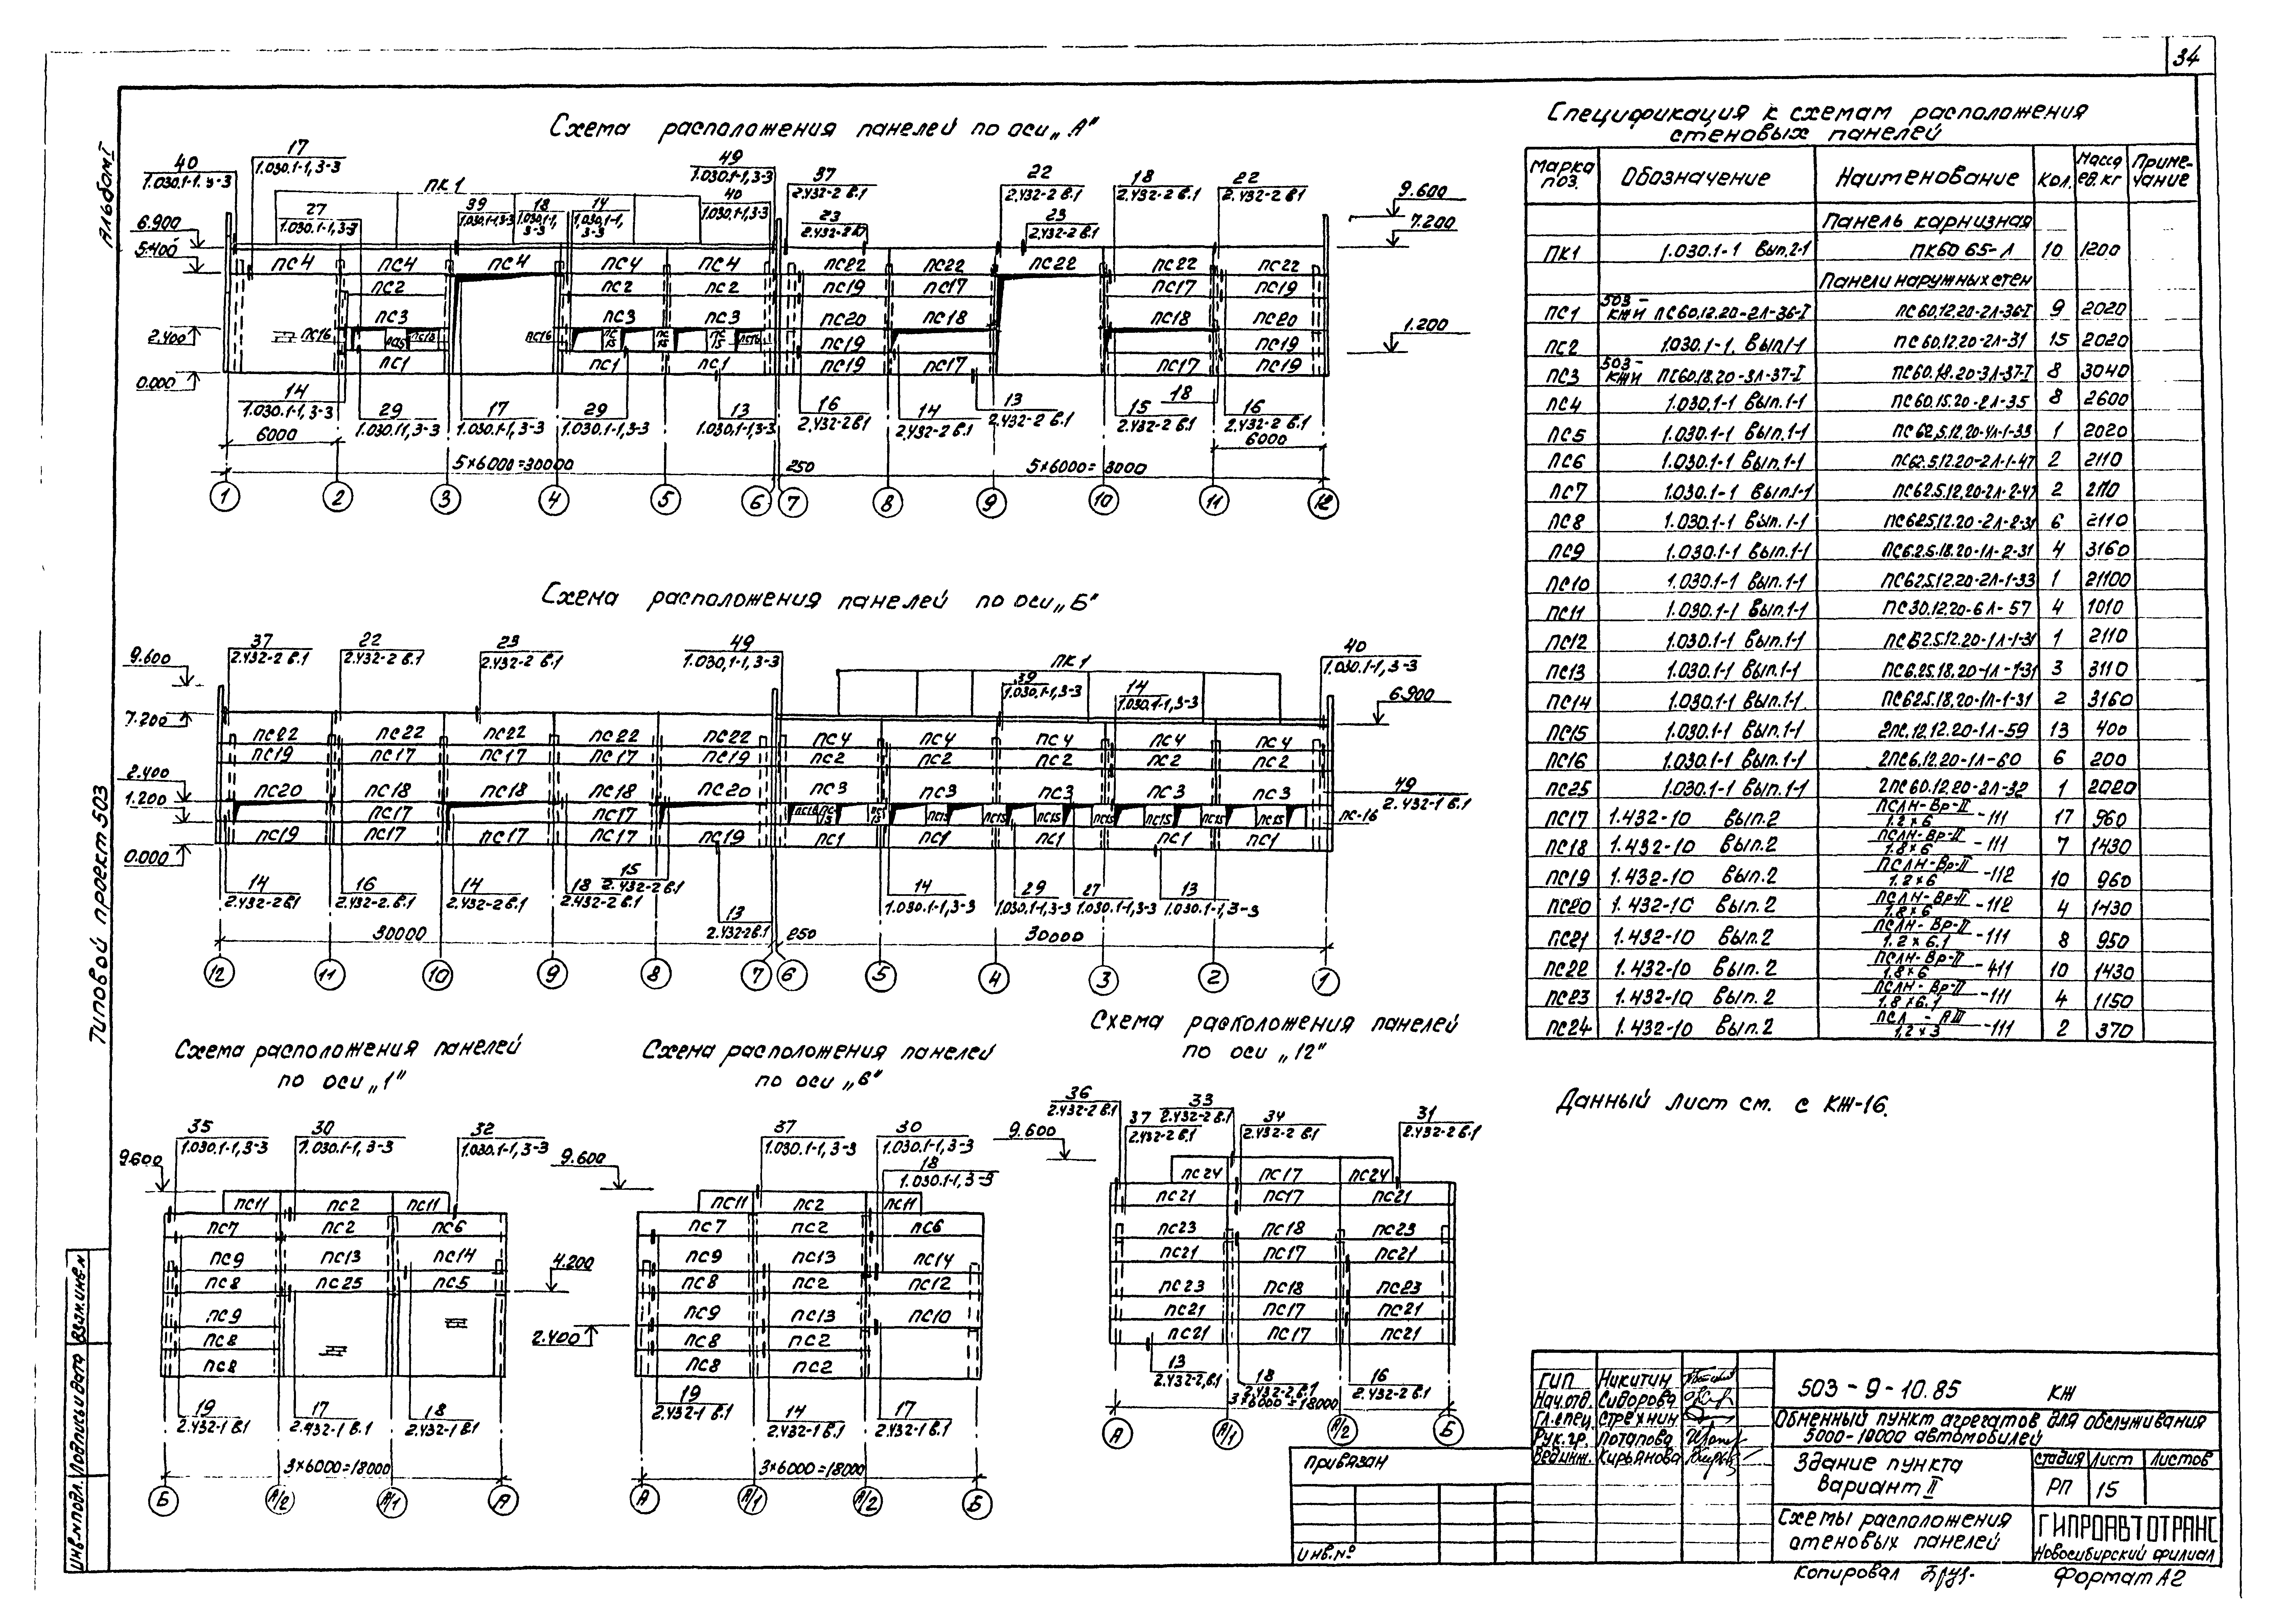 34
Альбом I
Типовой проект 503
Схема расположения панелей по оси „А"
40
1.030.1-1, 3-3
17
1.030.1-1, 3-3
27
1.030.1-1, 3-3
ПК1
39
1.030.1-1, 3-3
18
1.030.1-1, 3-3
14
1.030.1-1, 3-3
49
1.030.1-1, 3-3
40
1.030.1-1, 3-3
37
2.432-2 в.1
23
2.432-2 в.1
22
2.432-2 в.1
23
2.432-2 в.1
18
2.432-2 в.1
22
2.432-2 в.1
9.600
7.200
1.200
6.900
5.400
2.400
0.000
ПС4 ПС4 ПС4 ПС4 ПС4 ПС22 ПС22 ПС22 ПС22 ПС22
ПС2 ПС2 ПС2 ПС19 ПС17 ПС17 ПС19
ПС3 ПС3 ПС3 ПС20 ПС18 ПС18 ПС20
ПС16 ПС15 ПС16 ПС16 ПС15 ПС15 ПС15 ПС16 ПС19 ПС19
ПС1 ПС1 ПС1 ПС19 ПС17 ПС17 ПС19
14
1.030.1-1, 3-3
29
1.030.1-1, 3-3
17
1.030.1-1, 3-3
29
1.030.1-1, 3-3
13
1.030.1-1, 3-3
16
2.432-2 в.1
14
2.432-2 в.1
13
2.432-2 в.1
15
2.432-2 в.1
18
16
2.432-2 в.1
6000
6000
5×6000=30000 250 5×6000=3000
1 2 3 4 5 6 7 8 9 10 11 12
Схема расположения панелей по оси „Б"
9.600
7.200
2.400
1.200
0.000
37
2.432-2 в.1
22
2.432-2 в.1
23
2.432-2 в.1
49
1.030.1-1, 3-3
ПК1
39
1.030.1-1, 3-3
14
1.030.1-1, 3-3
40
1.030.1-1, 3-3
6.900
49
2.432-1 в.1
ПС-16
ПС22 ПС22 ПС22 ПС22 ПС22 ПС4 ПС4 ПС4 ПС4 ПС4
ПС19 ПС17 ПС17 ПС17 ПС19 ПС2 ПС2 ПС2 ПС2 ПС2
ПС20 ПС18 ПС18 ПС18 ПС20 ПС3 ПС3 ПС3 ПС3 ПС3
ПС17 ПС17 ПС16 ПС15 ПС15 ПС15 ПС15 ПС15 ПС15 ПС15 ПС15
ПС19 ПС17 ПС17 ПС17 ПС19 ПС1 ПС1 ПС1 ПС1 ПС1
14
2.432-2 в.1
16
2.432-2 в.1
14
2.432-2 в.1
18
2.432-2 в.1
15
2.432-2 в.1
13
2.432-2 в.1
14
1.030.1-1, 3-3
29
1.030.1-1, 3-3
27
1.030.1-1, 3-3
13
1.030.1-1, 3-3
30000 250 30000
12 11 10 9 8 7 6 5 4 3 2 1
Схема расположения панелей
по оси „1"
35
1.030.1-1, 3-3
30
1.030.1-1, 3-3
32
1.030.1-1, 3-3
9.600
4.200
ПС11 ПС2 ПС11
ПС7 ПС2 ПС6
ПС9 ПС13 ПС14
ПС8 ПС25 ПС5
ПС9
ПС8
ПС8
19
2.432-1 в.1
17
2.432-1 в.1
18
2.432-1 в.1
3×6000=18000
Б А/2 А/1 А
Схема расположения панелей
по оси „6"
37
1.030.1-1, 3-3
30
1.030.1-1, 3-3
18
1.030.1-1, 3-3
9.600
2.400
ПС11 ПС2 ПС11
ПС7 ПС2 ПС6
ПС9 ПС13 ПС14
ПС8 ПС2 ПС12
ПС9 ПС13 ПС10
ПС8 ПС2
ПС8 ПС2
19
2.432-1 в.1
14
2.432-1 в.1
17
2.432-1 в.1
3×6000=18000
А А/1 А/2 Б
Схема расположения панелей
по оси „12"
36
2.432-2 в.1
37
2.432-2 в.1
33
2.432-2 в.1
34
2.432-2 в.1
31
2.432-2 в.1
9.600
ПС24 ПС17 ПС24
ПС21 ПС17 ПС21
ПС23 ПС18 ПС23
ПС21 ПС17 ПС21
ПС23 ПС18 ПС23
ПС21 ПС17 ПС21
ПС21 ПС17 ПС21
13
2.432-2, в.1
18
2.432-2 в.1
16
2.432-2 в.1
3×6000=18000
А А/1 А/2 Б
Спецификация к схемам расположения
стеновых панелей
Марка поз. Обозначение Наименование Кол. Масса ед. кг Примечание
Панель карнизная
ПК1 1.030.1-1 Вып.2-1 ПК60 65-Л 10 1200
Панели наружных стен
ПС1 503-КЖИ ПС60.12.20-2Л-36-I ПС60.12.20-2Л-36-I 9 2020
ПС2 1.030.1-1. Вып.1-1 ПС60.12.20-2Л-31 15 2020
ПС3 503-КЖИ ПС60.18.20-3Л-37-I ПС60.18.20-3Л-37-I 8 3040
ПС4 1.030.1-1 Вып.1-1 ПС60.15.20-2Л-35 8 2600
ПС5 1.030.1-1 Вып.1-1 ПС62,5.12.20-4Л-1-33 1 2020
ПС6 1.030.1-1 Вып.1-1 ПС62.5.12.20-2Л-1-47 2 2110
ПС7 1.030.1-1 Вып.1-1 ПС62.5.12.20-2Л-2-47 2 2110
ПС8 1.030.1-1 Вып.1-1 ПС625.12.20-2Л-2-31 6 2110
ПС9 1.030.1-1 Вып.1-1 ПС6.2.5.18.20-1Л-2-31 4 3160
ПС10 1.030.1-1 Вып.1-1 ПС62.5.12.20-2Л-1-33 1 21100
ПС11 1.030.1-1 Вып.1-1 ПС30.12.20-6Л-57 4 1010
ПС12 1.030.1-1 Вып.1-1 ПС62.5.12.20-1Л-1-31 1 2110
ПС13 1.030.1-1 Вып.1-1 ПС6.25.18.20-1Л-1-31 3 3110
ПС14 1.030.1-1 Вып.1-1 ПС62.5.18.20-1Л-1-31 2 3160
ПС15 1.030.1-1 Вып.1-1 2ПС.12.12.20-1Л-59 13 400
ПС16 1.030.1-1 Вып.1-1 2ПС6.12.20-1Л-60 6 200
ПС25 1.030.1-1 Вып.1-1 2ПС60.12.20-2Л-32 1 2020
ПС17 1.432-10 Вып.2 ПСЛН-Вр-II/1.2×6-111 17 960
ПС18 1.432-10 Вып.2 ПСЛН-Вр-II/1.8×6-111 7 1430
ПС19 1.432-10 Вып.2 ПСЛН-Вр-II/1.2×6-112 10 960
ПС20 1.432-10 Вып.2 ПСЛН-Вр-II/1.8×6-112 4 1430
ПС21 1.432-10 Вып.2 ПСЛН-Вр-II/1.2×6.1-111 8 950
ПС22 1.432-10 Вып.2 ПСЛН-Вр-II/1.8×6-411 10 1430
ПС23 1.432-10 Вып.2 ПСЛН-Вр-II/1.8×6.1-111 4 1150
ПС24 1.432-10 Вып.2 ПСЛ-АIII/1.2×3-111 2 370
Данный лист см. с КЖ-16.
ГИП Никитин
Нач.отд. Сидорова
Гл.спец. Стрехнин
Рук.гр. Потапова
Вед.инж. Кирьянова
503-9-10.85 КЖ
Обменный пункт агрегатов для обслуживания
5000-10000 автомобилей
Здание пункта
Вариант II
Стадия Лист Листов
РП 15
Схемы расположения
стеновых панелей
ГИПРОАВТОТРАНС
Новосибирский филиал
Привязан
Инв.№
Копировал
Формат А2
Взам.инв.№
Подпись и дата
Инв.№ подл.